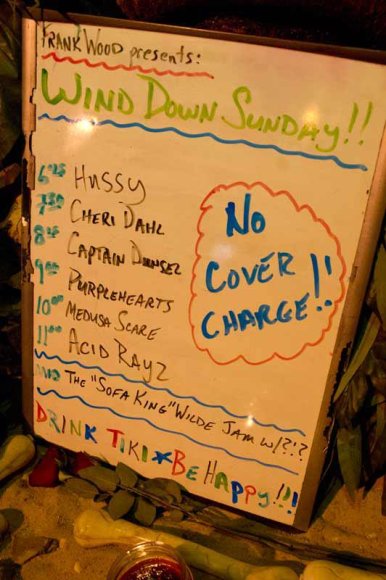 FRANK WOOD presents:
WIND DOWN SUNDAY!!
6:45 HUSSY
7:30 CHERI DAHL
8:15 CAPTAIN
9:00 PURPLEHEARTS
10:00 MEDUSA SCARE
11:00 ACID RAYZ
THE "SOFA KING" WILDE JAM W/?!?
NO
COVER
CHARGE!!
DRINK TIKI * BE HAPPY!!!